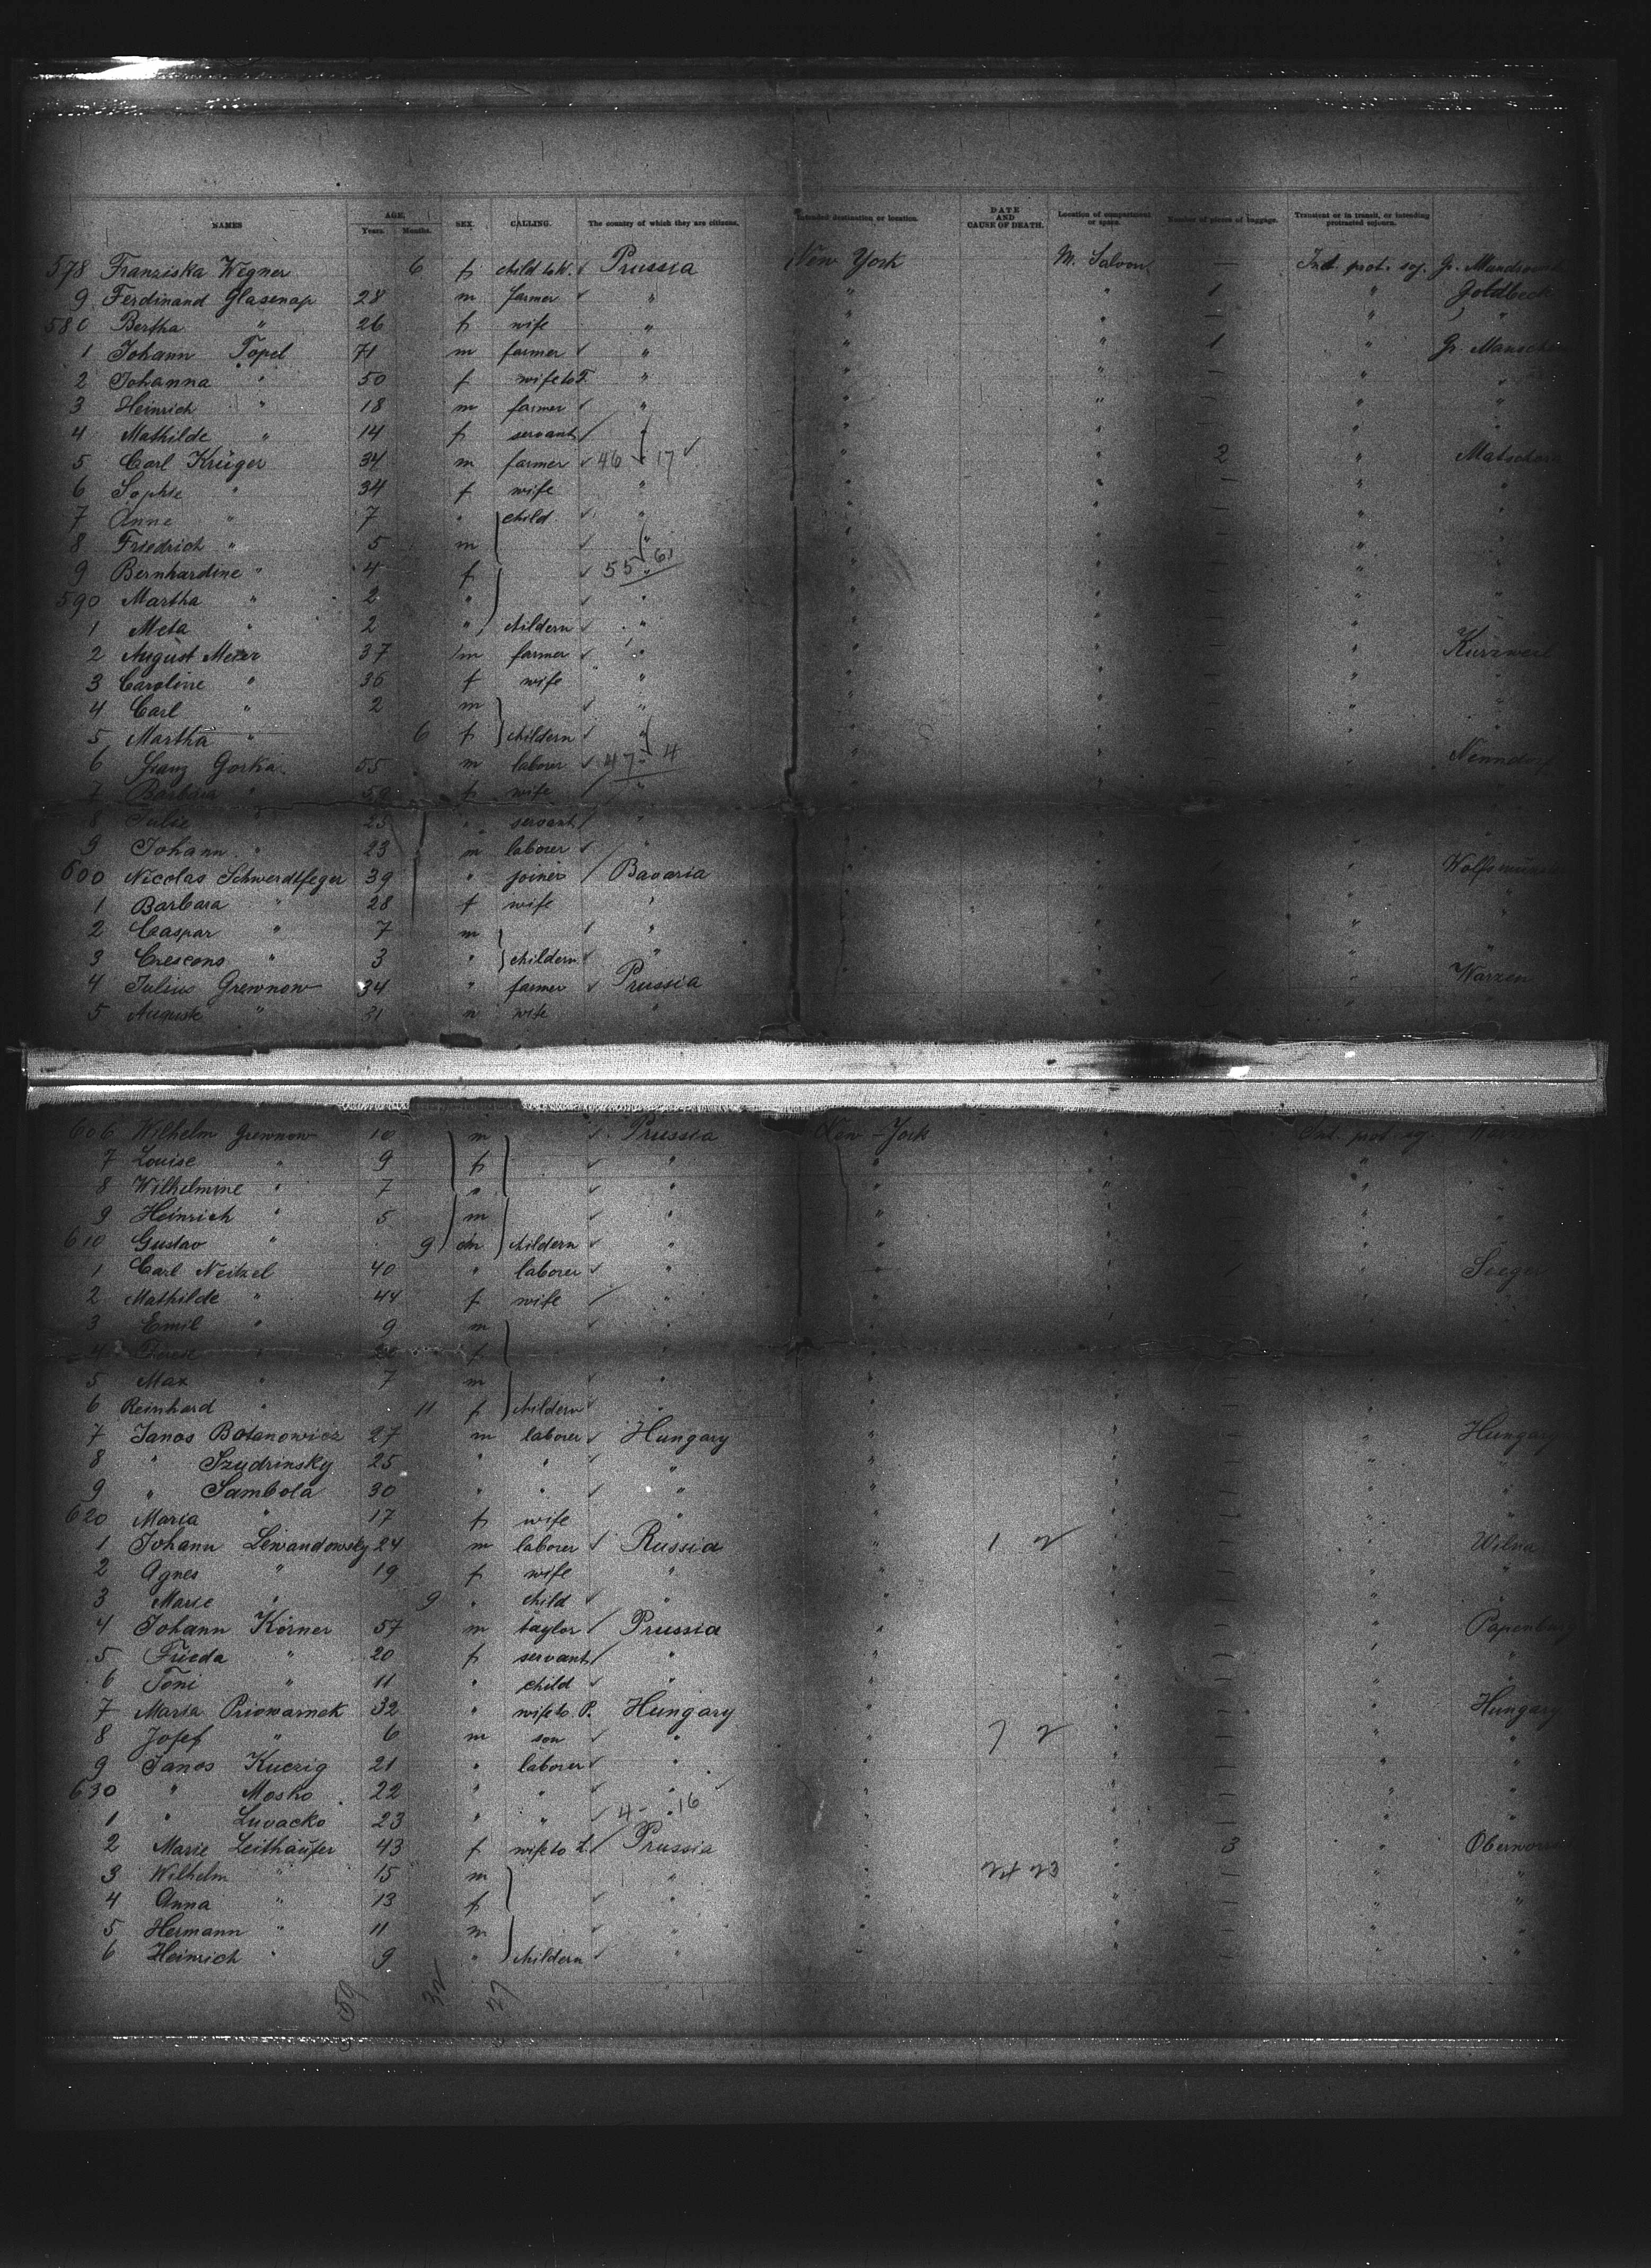 NAMES AGE, Years. Months. SEX. CALLING. The country of which they are citizens. Intended destination or location. DATE AND CAUSE OF DEATH. Location of compartment or space. Number of pieces of luggage. Transient or in transit, or intending protracted sojourn.
578 Franziska Wegner 6 f child to W. Prussia New York M. Saloon — Int. prot. soj.
9 Ferdinand Glasenap 28 m farmer " " " 1 " Goldbeck
580 Bertha " 26 f wife " " " — " "
1 Johann Topel 71 m farmer " " " 1 "
2 Johanna " 50 f wife to T. " " " — " "
3 Heinrich " 18 m farmer " " " — " "
4 Mathilde " 14 f servant " " " — " "
5 Carl Krüger 34 m farmer 46 17 " " 2 "
6 Sophie " 34 f wife " " " — " "
7 Anne " 7 " child " " " — " "
8 Friedrich " 5 m " " " — " "
9 Bernhardine " 4 f 55 61 " " — " "
590 Martha " 2 " " " " — " "
1 Meta " 2 " childern " " " — " "
2 August Meier 37 m farmer " " " — " Kurzweil
3 Caroline " 36 f wife " " " — " "
4 Carl " 2 m " " " — " "
5 Martha " 6 f childern " " " — " "
6 Franz Gorka 55 m laborer 47 - 4 " " — " Nenndorf
7 Barbara " 59 f wife "
8 Julie " 25 " servant "
9 Johann " 23 m laborer "
600 Nicolas Schwerdtfeger 39 " joiner Bavaria
1 Barbara " 28 f wife "
2 Caspar " 7 m "
3 Crescens " 3 " childern "
4 Julius Grewnow 34 " farmer Prussia Warzen
5 Auguste " 31 wife "
606 Wilhelm Grewnow 10 m Prussia New-York
7 Louise " 9 f " "
8 Wilhelmine " 7 " " "
9 Heinrich " 5 m " "
610 Gustav " 9 m childern " "
1 Carl Neitzel 40 " laborer " " Soeger
2 Mathilde " 44 f wife " "
3 Emil " 9 m "
4 f
5 Max " 7 m "
6 Reinhard " 11 f childern " "
7 Janos Botanowicz 27 m laborer Hungary " " — " Hungary
8 " Szudrinsky 25 " " " " " — " "
9 " Sambola 30 " " " " " — " "
620 Maria " 17 f wife " " " — " "
1 Johann Lewandowsky 24 m laborer Russia " 1 2 " — " Wilna
2 Agnes " 19 f wife " " " — " "
3 Marie " 9 " child " " " — " "
4 Johann Körner 57 m taylor Prussia " " — " Papenburg
5 Frieda " 20 f servant " " " — " "
6 Toni " 11 " child " " " — " "
7 Maria Priowarnek 32 " wife to P. Hungary " " — " Hungary
8 Josef " 6 m son " " 7 2 " — " "
9 Janos Kuczig 21 " laborer " " " — " "
630 " Mosko 22 " " " " " — " "
1 " Luvacko 23 " " 4 - 16 " " — " "
2 Marie Leithäufer 43 f wife to L. Prussia " " 3 "
3 Wilhelm " 15 m " " 24 23 " — " "
4 Anna " 13 f " " " — " "
5 Hermann " 11 m " " " — " "
6 Heinrich " 9 " childern " " " — " "
59 32 27